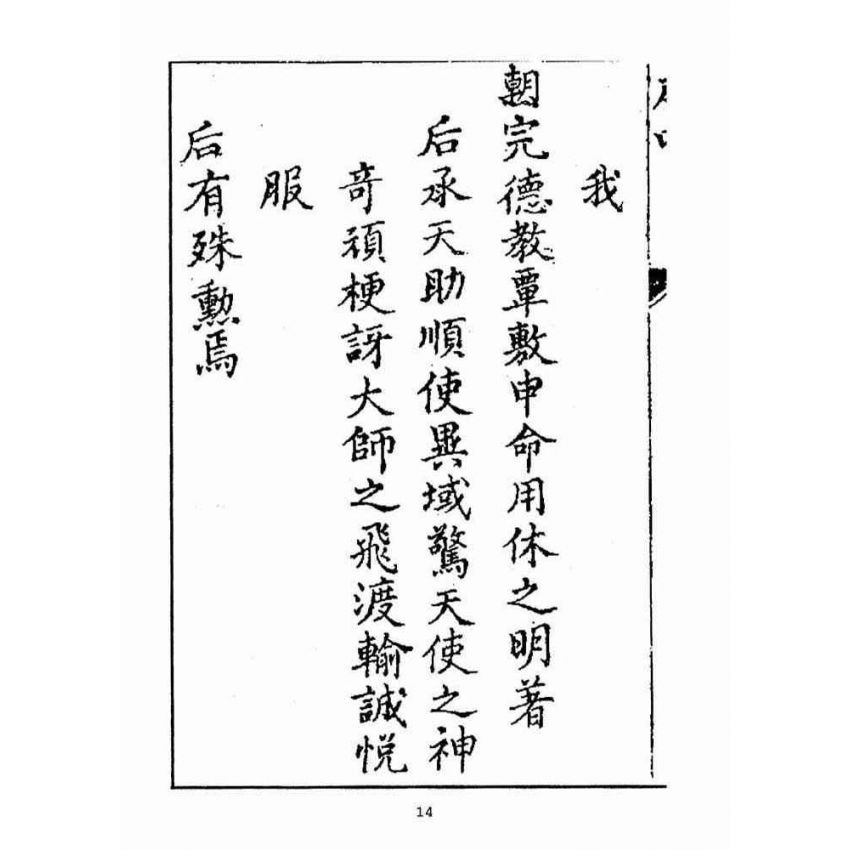 我
朝完德教覃敷申命用休之明著
后承天助順使異域驚天使之神
奇頑梗訝大師之飛渡輸誠悅
服
后有殊勲焉
14